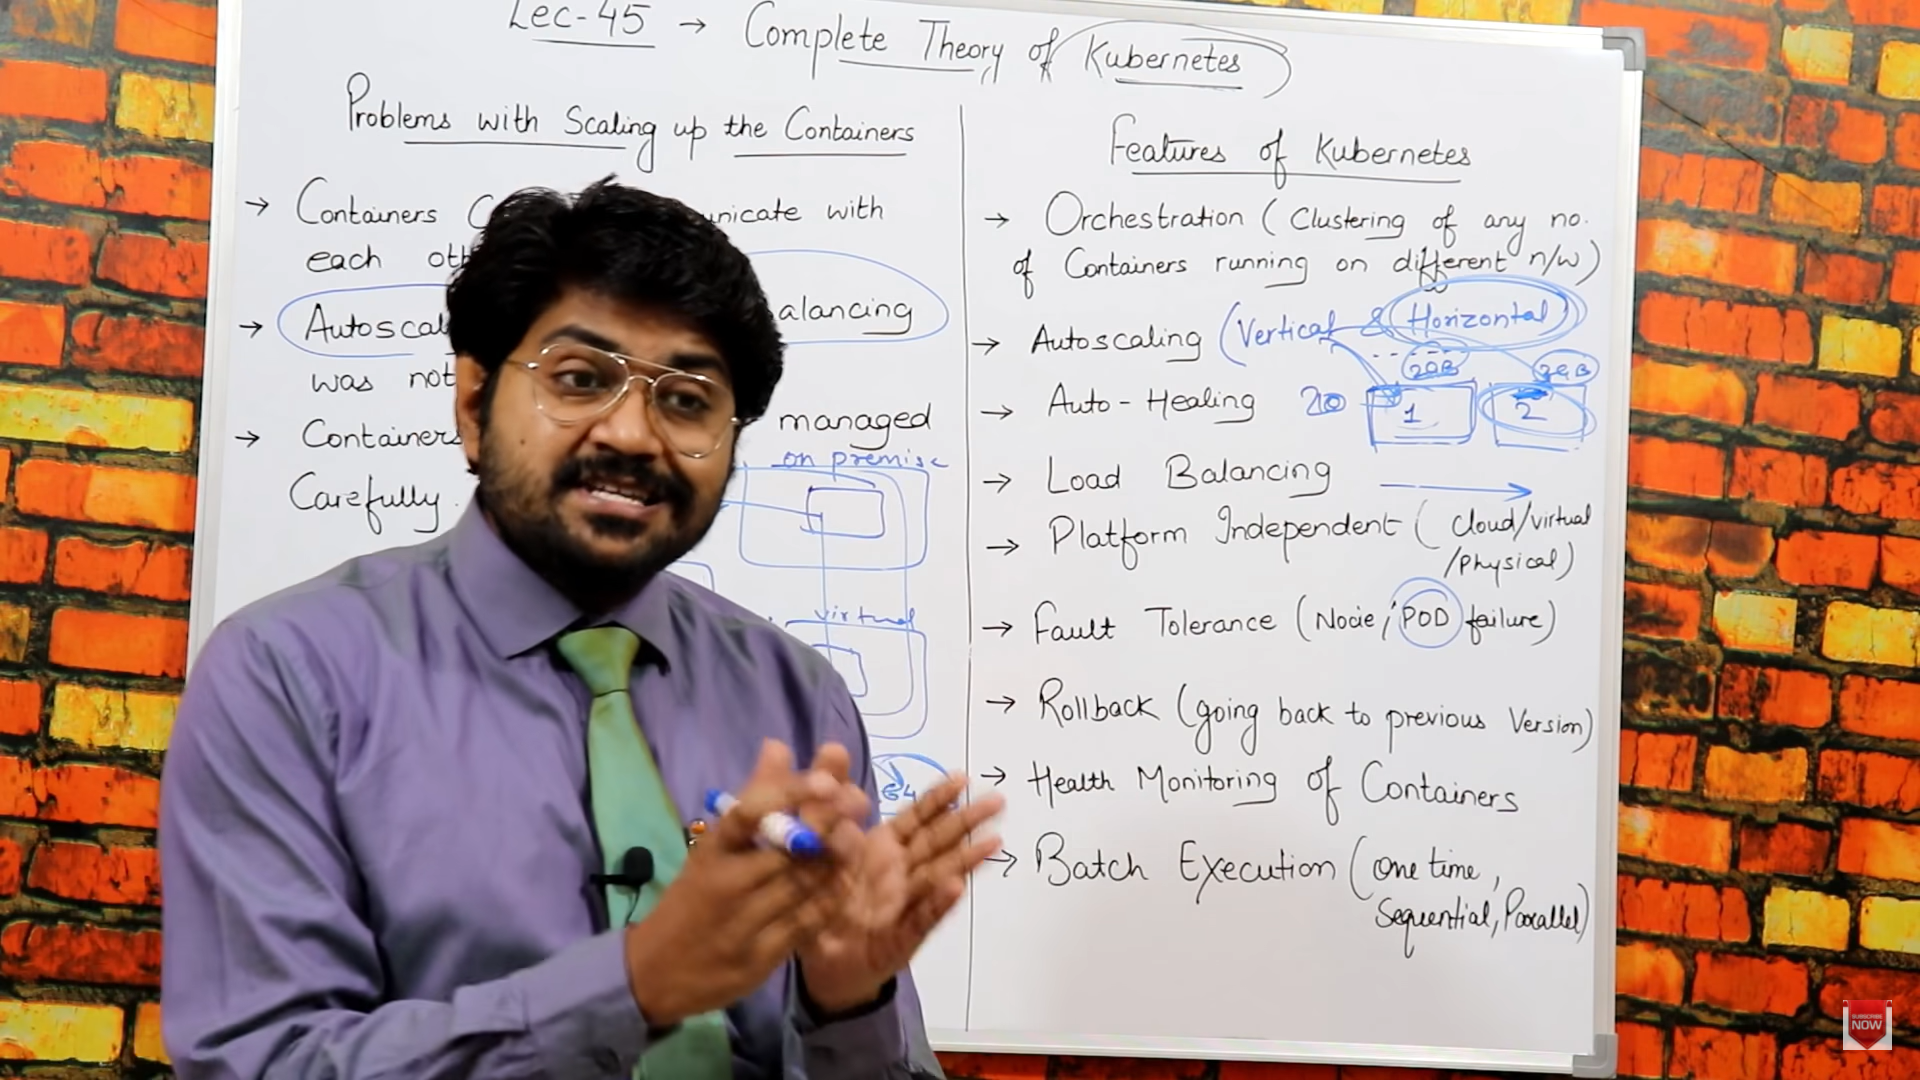 Lec-45 → Complete Theory of Kubernetes
Problems with Scaling up the Containers
→ Containers
nicate with
each
→
alancing
was not
→ Containers
managed
on premise
Carefully.
virtual
64
Features of Kubernetes
→ Orchestration (Clustering of any no.
of Containers running on different n/w)
→ Autoscaling (Vertical & Horizontal)
→ Auto-Healing
1
2
→ Load Balancing
→ Platform Independent (Cloud/virtual
/Physical)
→ Fault Tolerance (Node, POD failure)
→ Rollback (going back to previous Version)
→ Health Monitoring of Containers
→ Batch Execution (One time,
Sequential, Parallel)
SUBSCRIBE
NOW